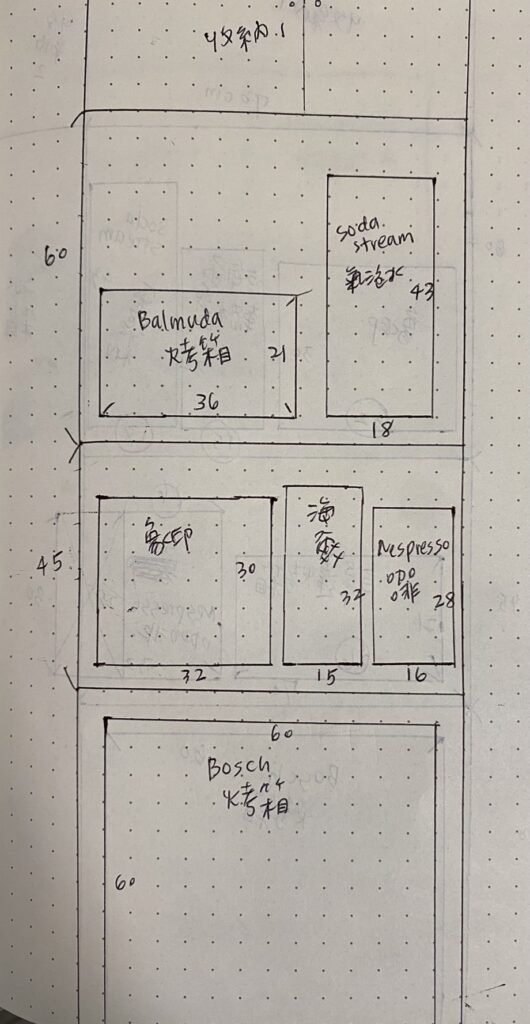 收納.1
60
soda
stream
氣泡水
43
18
Balmuda
烤箱
21
36
45
象印
30
32
32
15
Nespresso
咖啡
28
16
60
Bosch
烤箱
60